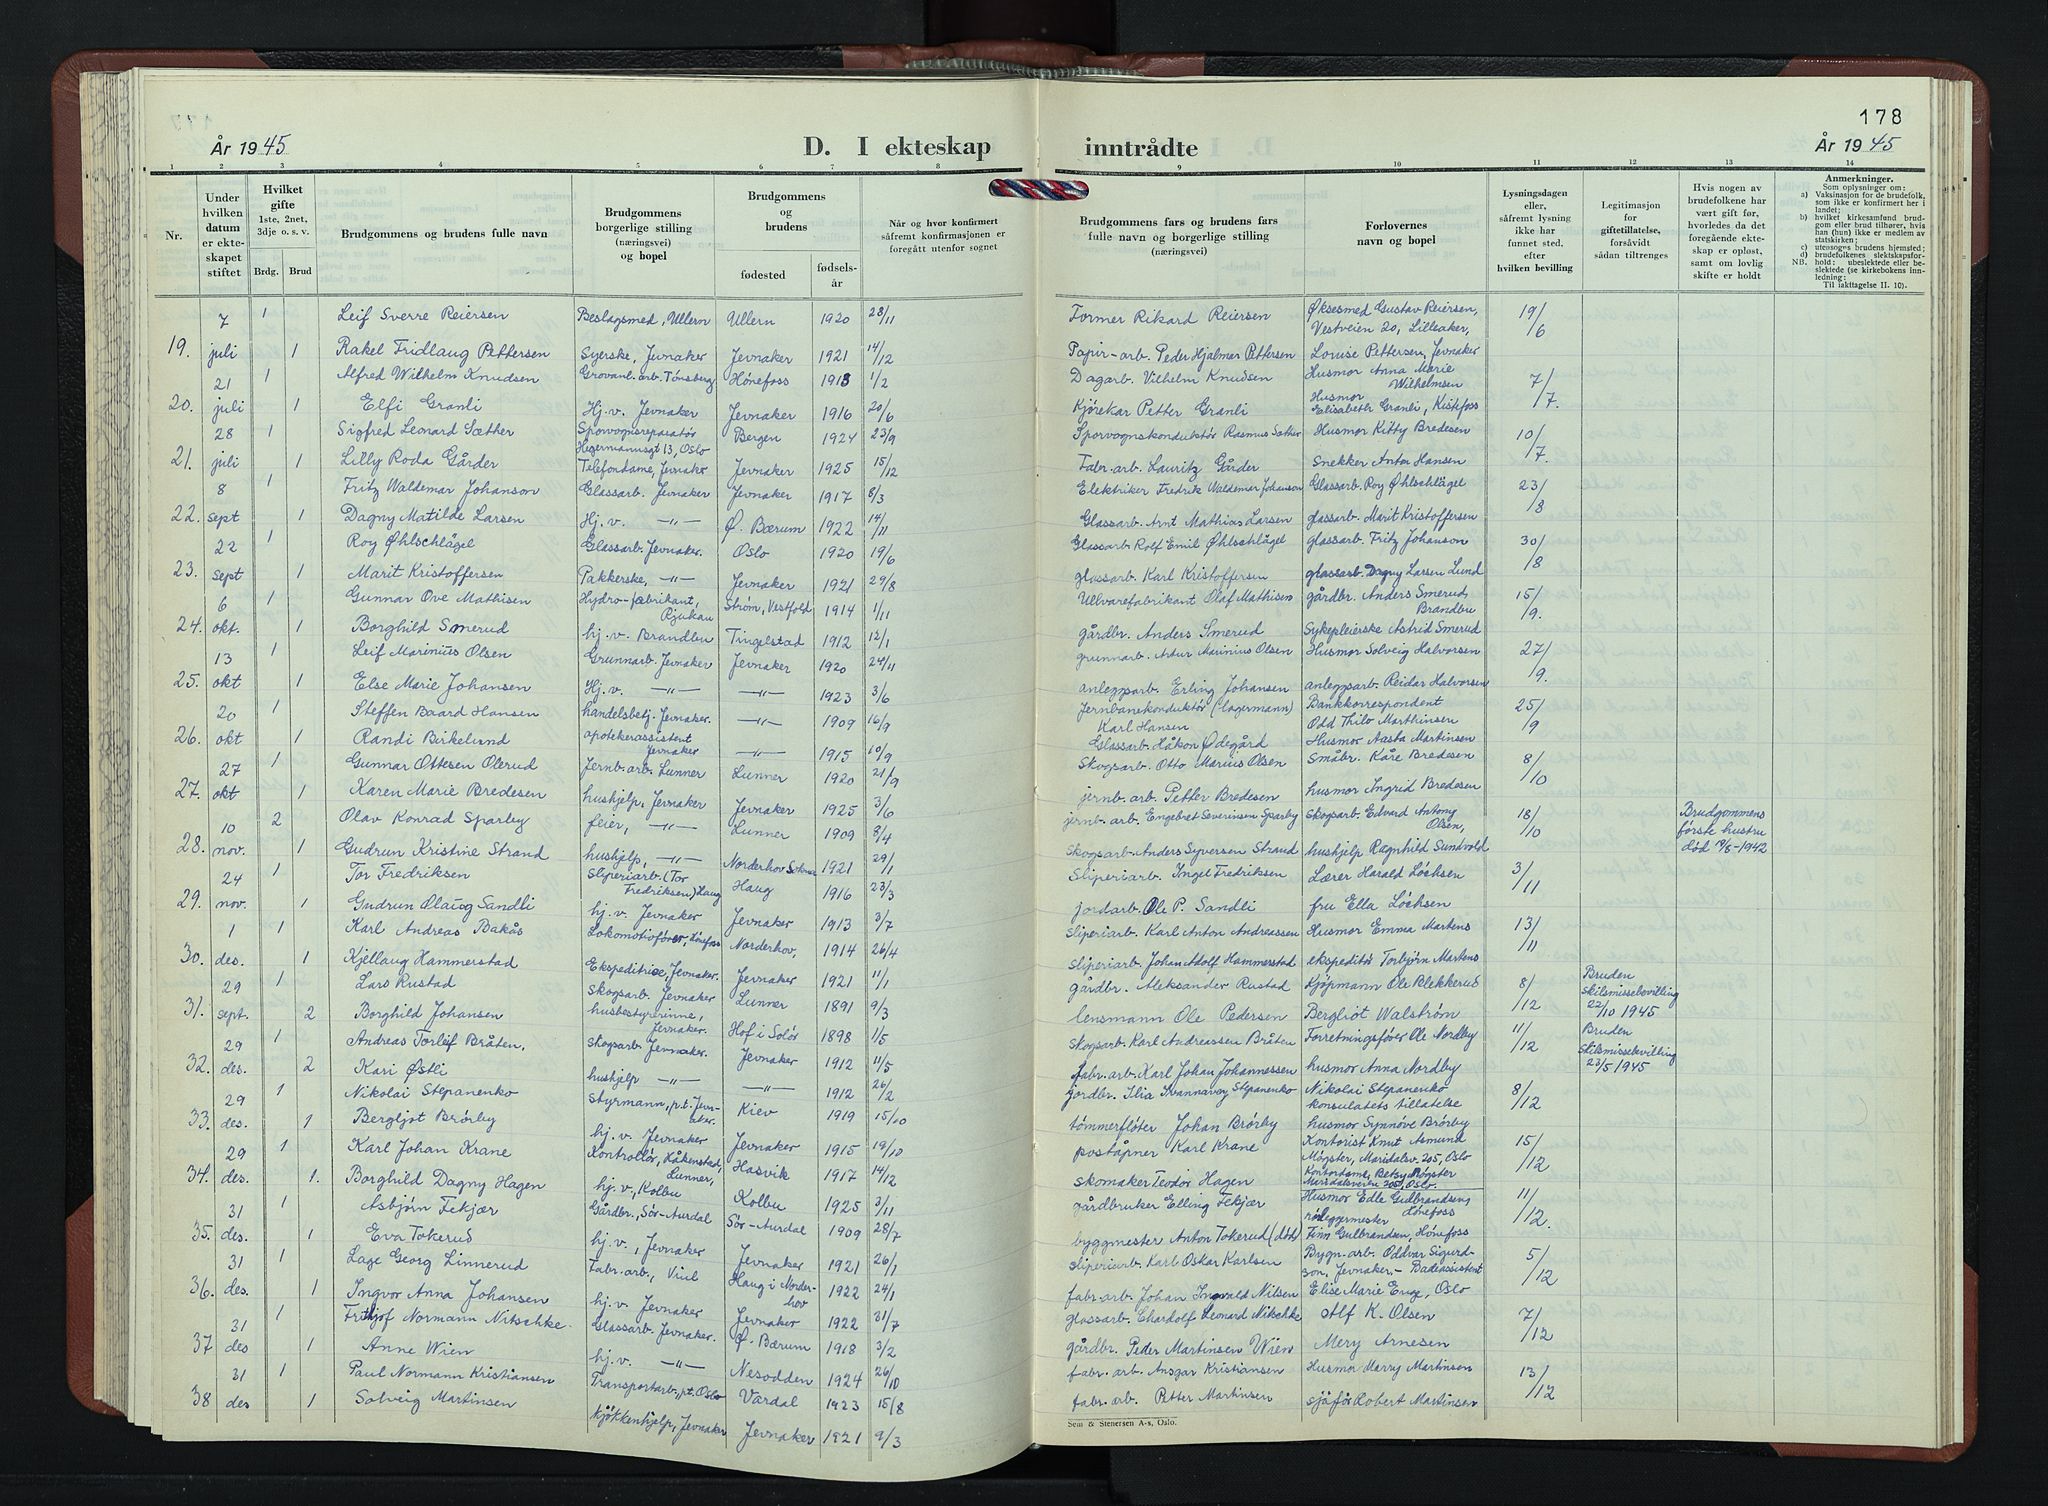 178
År 1945
D. I ekteskap inntrådte
År 1945
1 2 3 4 5 6 7 8 9 10 11 12 13 14
Nr.
Under hvilken datum er ekteskapet stiftet
Hvilket gifte 1ste, 2net, 3dje o. s. v.
Brdg. Brud
Brudgommens og brudens fulle navn
Brudgommens borgerlige stilling (næringsvei) og bopel
Brudgommens og brudens
fødested
fødsels-år
Når og hvor konfirmert såfremt konfirmasjonen er foregått utenfor sognet
Brudgommens fars og brudens fars fulle navn og borgerlige stilling (næringsvei)
Forlovernes navn og bopel
Lysningsdagen eller, såfremt lysning ikke har funnet sted, efter hvilken bevilling
Legitimasjon for giftetillatelse, forsåvidt sådan tiltrenges
Hvis nogen av brudefolkene har vært gift før, hvorledes da det foregående ekteskap er opløst, samt om lovlig skifte er holdt
Anmerkninger.
Som oplysninger om:
a) Vaksinasjon for de brudefolk, som ikke er konfirmert her i landet;
b) hvilket kirkesamfund brudgom eller brud tilhører, hvis han (hun) ikke er medlem av statskirken;
c) uteosogns brudens hjemsted;
d) brudefolkenes slektskapsforhold:
NB. ubeslektede eller beslektede (se kirkebokens innledning; Til iakttagelse II. 10).
7 1 Leif Sverre Reiersen Beslagsmed, Ullern Ullern 1920 28/11 Former Rikard Reiersen Øksesmed Gustav Reiersen, Vestveien 20, Lilleaker, 19/6
19. juli 1 Rakel Fridlaug Pettersen Syerske, Jevnaker Jevnaker 1921 14/12 Papir-arb. Peder Hjalmar Pettersen Louise Pettersen, Jevnaker
21 1 Alfred Wilhelm Knudsen Grovanl. arb. Tønsberg Hønefoss 1918 1/2 Dagarb. Vilhelm Knudsen Husmor Anna Marie Wilhelmsen 7/7.
20. juli 1 Elfi Granli Hj.v. Jevnaker Jevnaker 1916 20/6 Kjørekar Petter Granli Husmor Elisabeth Granli, Kistefoss
28 1 Sigfred Leonard Sæther Sporvognsreparatør Hegermannsgt 13, Oslo Bergen 1924 23/9 Sporvognskonduktør Rasmus Sæther Husmor Kitty Bredesen 10/7.
21. juli 1 Lilly Roda Gårder Telefondame, Jevnaker Jevnaker 1925 15/12 Fabr. arb. Lauritz Gårder Snekker Anton Hansen
8 1 Fritz Waldemar Johanson Glassarb. Jevnaker Jevnaker 1917 8/3 Elektriker Fredrik Waldemar Johanson Glassarb. Roy Øhlschlägel 23/8
22. sept 1 Dagny Matilde Larsen Hj. v. —„— Ø. Bærum 1922 14/11 Glassarb. Arnt Mathias Larsen glassarb. Marit Kristoffersen
22 1 Roy Øhlschlägel Glassarb. Jevnaker. Oslo 1920 19/6 Glassarb Rolf Emil Øhlschlägel glassarb. Fritz Johanson 30/8
23. sept 1 Marit Kristoffersen Pakkerske, —„— Jevnaker 1921 29/8 glassarb. Karl Kristoffersen glassarb. Dagny Larsen Lund
6 1 Gunnar Ove Mathisen Hydro-fabrikant, Rjukan Strøm, Vestfold 1914 1/11 Ullvarefabrikant Olaf Mathisen gårdbr. Anders Smerud, Brandbu 15/9.
24. okt. 1 Borghild Smerud hj. v. Brandbu Tingelstad 1912 12/1 gårdbr. Anders Smerud Sykepleierske Astrid Smerud
13 1 Leif Marinius Olsen Grunnarb. Jevnaker Jevnaker 1920 24/11 grunnarb. Artur Marinius Olsen Husmor Solveig Halvorsen 27/9.
25. okt 1 Else Marie Johansen Hj. v. —„— —„— 1923 3/6 anleggsarb. Erling Johansen anleggsarb. Reidar Halvorsen
20 1 Steffen Baard Hansen handelsbetj. Jevnaker. —„— 1909 16/9 Jernbanekonduktør (lagermann) Karl Hansen Bankkorrespondent Odd Thilo Marthinsen 25/9
26. okt 1 Randi Birkelund apotekerassistent Jevnaker —„— 1915 10/9 Glassarb. Håkon Ødegård Husmor Aasta Martinsen
27 1 Gunnar Ottesen Olerud Jernb. arb. Lunner Lunner 1920 21/9 Skogsarb. Otto Marius Olsen Småbr. Kåre Bredesen 8/10
27. okt 1 Karen Marie Bredesen hushjelp, Jevnaker Jevnaker 1925 3/6 jernb. arb. Petter Bredesen husmor Ingrid Bredesen
10 2 Olav Konrad Sparby feier, —„— Lunner 1909 8/4 jernb. arb. Engebret Severinsen Sparby skogsarb. Edvard Antony Olsen, 18/10 Brudgommens første hustru død /8-1942
28. nov. 1 Gudrun Kristine Strand hushjelp, —„— Norderhov 1921 29/1 Skogsarb. Anders Syversen Strand hushjelp Ragnhild Sundvold
24 1 Tor Fredriksen Sliperiarb. (Tor Fredriksen) Haug Haug 1916 23/3 Sliperiarb. Ingel Fredriksen Lærer Harald Løchsen 3/11
29. nov. 1 Gudrun Olaug Sandli hj. v. Jevnaker Jevnaker 1913 3/7 jordarb. Ole P. Sandli fru Ella Løchsen
1 1 Karl Andreas Bakås Lokomotivfører, Hønefoss Norderhov, 1914 26/4 sliperiarb. Karl Anton Andreassen Husmor Emma Martens 13/11
30. des. 1 Kjellaug Hammerstad Ekspeditrise, Jevnaker. Jevnaker 1921 11/1 sliperiarb. Johan Adolf Hammerstad ekspeditør Torbjørn Martens
29 1 Lars Rustad Skogsarb. Jevnaker Lunner 1891 9/3 gårdbr. Aleksander Rustad Kjøpmann Ole Blekkerud 8/12 Bruden skilsmissebevilling 22/10 1945
31. sept. 2 Borghild Johansen husbestyrerinne, Jevnaker. Hof i Solør 1898 1/5 lensmann Ole Pedersen Bergliot Walstrøm
29 1 Andreas Torleif Bråten. skogsarb. Jevnaker. Jevnaker 1912 11/5 skogsarb. Karl Andreassen Bråten Forretningsfører Ole Nordby 11/12 Bruden skilsmissebevilling 23/5 1945
32. des. 2 Kari Østli hushjelp —„— —„— 1912 26/2 fabr. arb. Karl Johan Johannessen husmor Anna Nordby
29 1 Nikolai Stepanenko styrmann, p.t. Jevnaker. Kiev 1919 15/10 jordbr. Ilia Stepanenko Nikolai Stepanenko konsulatets tillatelse 8/12
33. des. 1 Bergljot Brørby hj. v. Jevnaker Jevnaker 1915 19/10 tømmerfløter Johan Brørby husmor Synnøve Brørby
29 1 Karl Johan Krane Kontrollør, Håkenstad, Lunner, Hasvik 1917 14/12 poståpner Karl Krane Kontorist Knut Asmund Møgster, Maridalsv. 205, Oslo 15/12
34. des. 1. Borghild Dagny Hagen hj. v., Kolbu Kolbu 1925 3/11 skomaker Teodor Hagen Kontordame Betsy Møgster Maridalsveien 205, Oslo.
31 1 Asbjørn Fekjær Gårdbr., Sør-Aurdal Sør-Aurdal 1909 28/7 gårdbruker Elling Fekjær Husmor Edle Gulbrandsen, Hønefoss 11/12.
35. des. 1 Eva Tokerud hj. v., Jevnaker Jevnaker 1921 26/1 byggmester Anton Tokerud (død) rørleggermester Finn Gulbrandsen, Hønefoss
31 1 Lage Georg Linnerud Fabr. arb., Viul Haug i Norderhov 1922 24/1 sliperiarb. Karl Oskar Karlsen Bygn. arb. Oddvar Sigurdson, Jevnaker. - Badeassistent 5/12
36. des. 1 Ingvor Anna Johansen hj. v. Jevnaker Jevnaker 1922 31/7 fabr. arb. Johan Ingvald Nilsen Elise Marie Enge, Oslo
31 1 Frithjof Normann Nitschke. Glassarb. Jevnaker. Ø. Bærum 1918 3/2 glassarb. Chardolf Leonard Nitschke Alf K. Olsen 7/12
37 des 1 Anne Wien hj. v. —„— Nesodden 1924 26/10 gårdbr. Peder Martinsen Wien Mery Arnesen
31 1 Paul Normann Kristiansen Transportarb., pt. Oslo Vardal 1923 15/8 fabr. arb. Ansgar Kristiansen Husmor Marry Martinsen 13/12
38 des 1 Solveig Martinsen kjøkkenhjelp, Jevnaker Jevnaker 1921 9/3 fabr. arb. Petter Martinsen sjåfør Robert Martinsen
Sem & Stenersen A-s, Oslo.